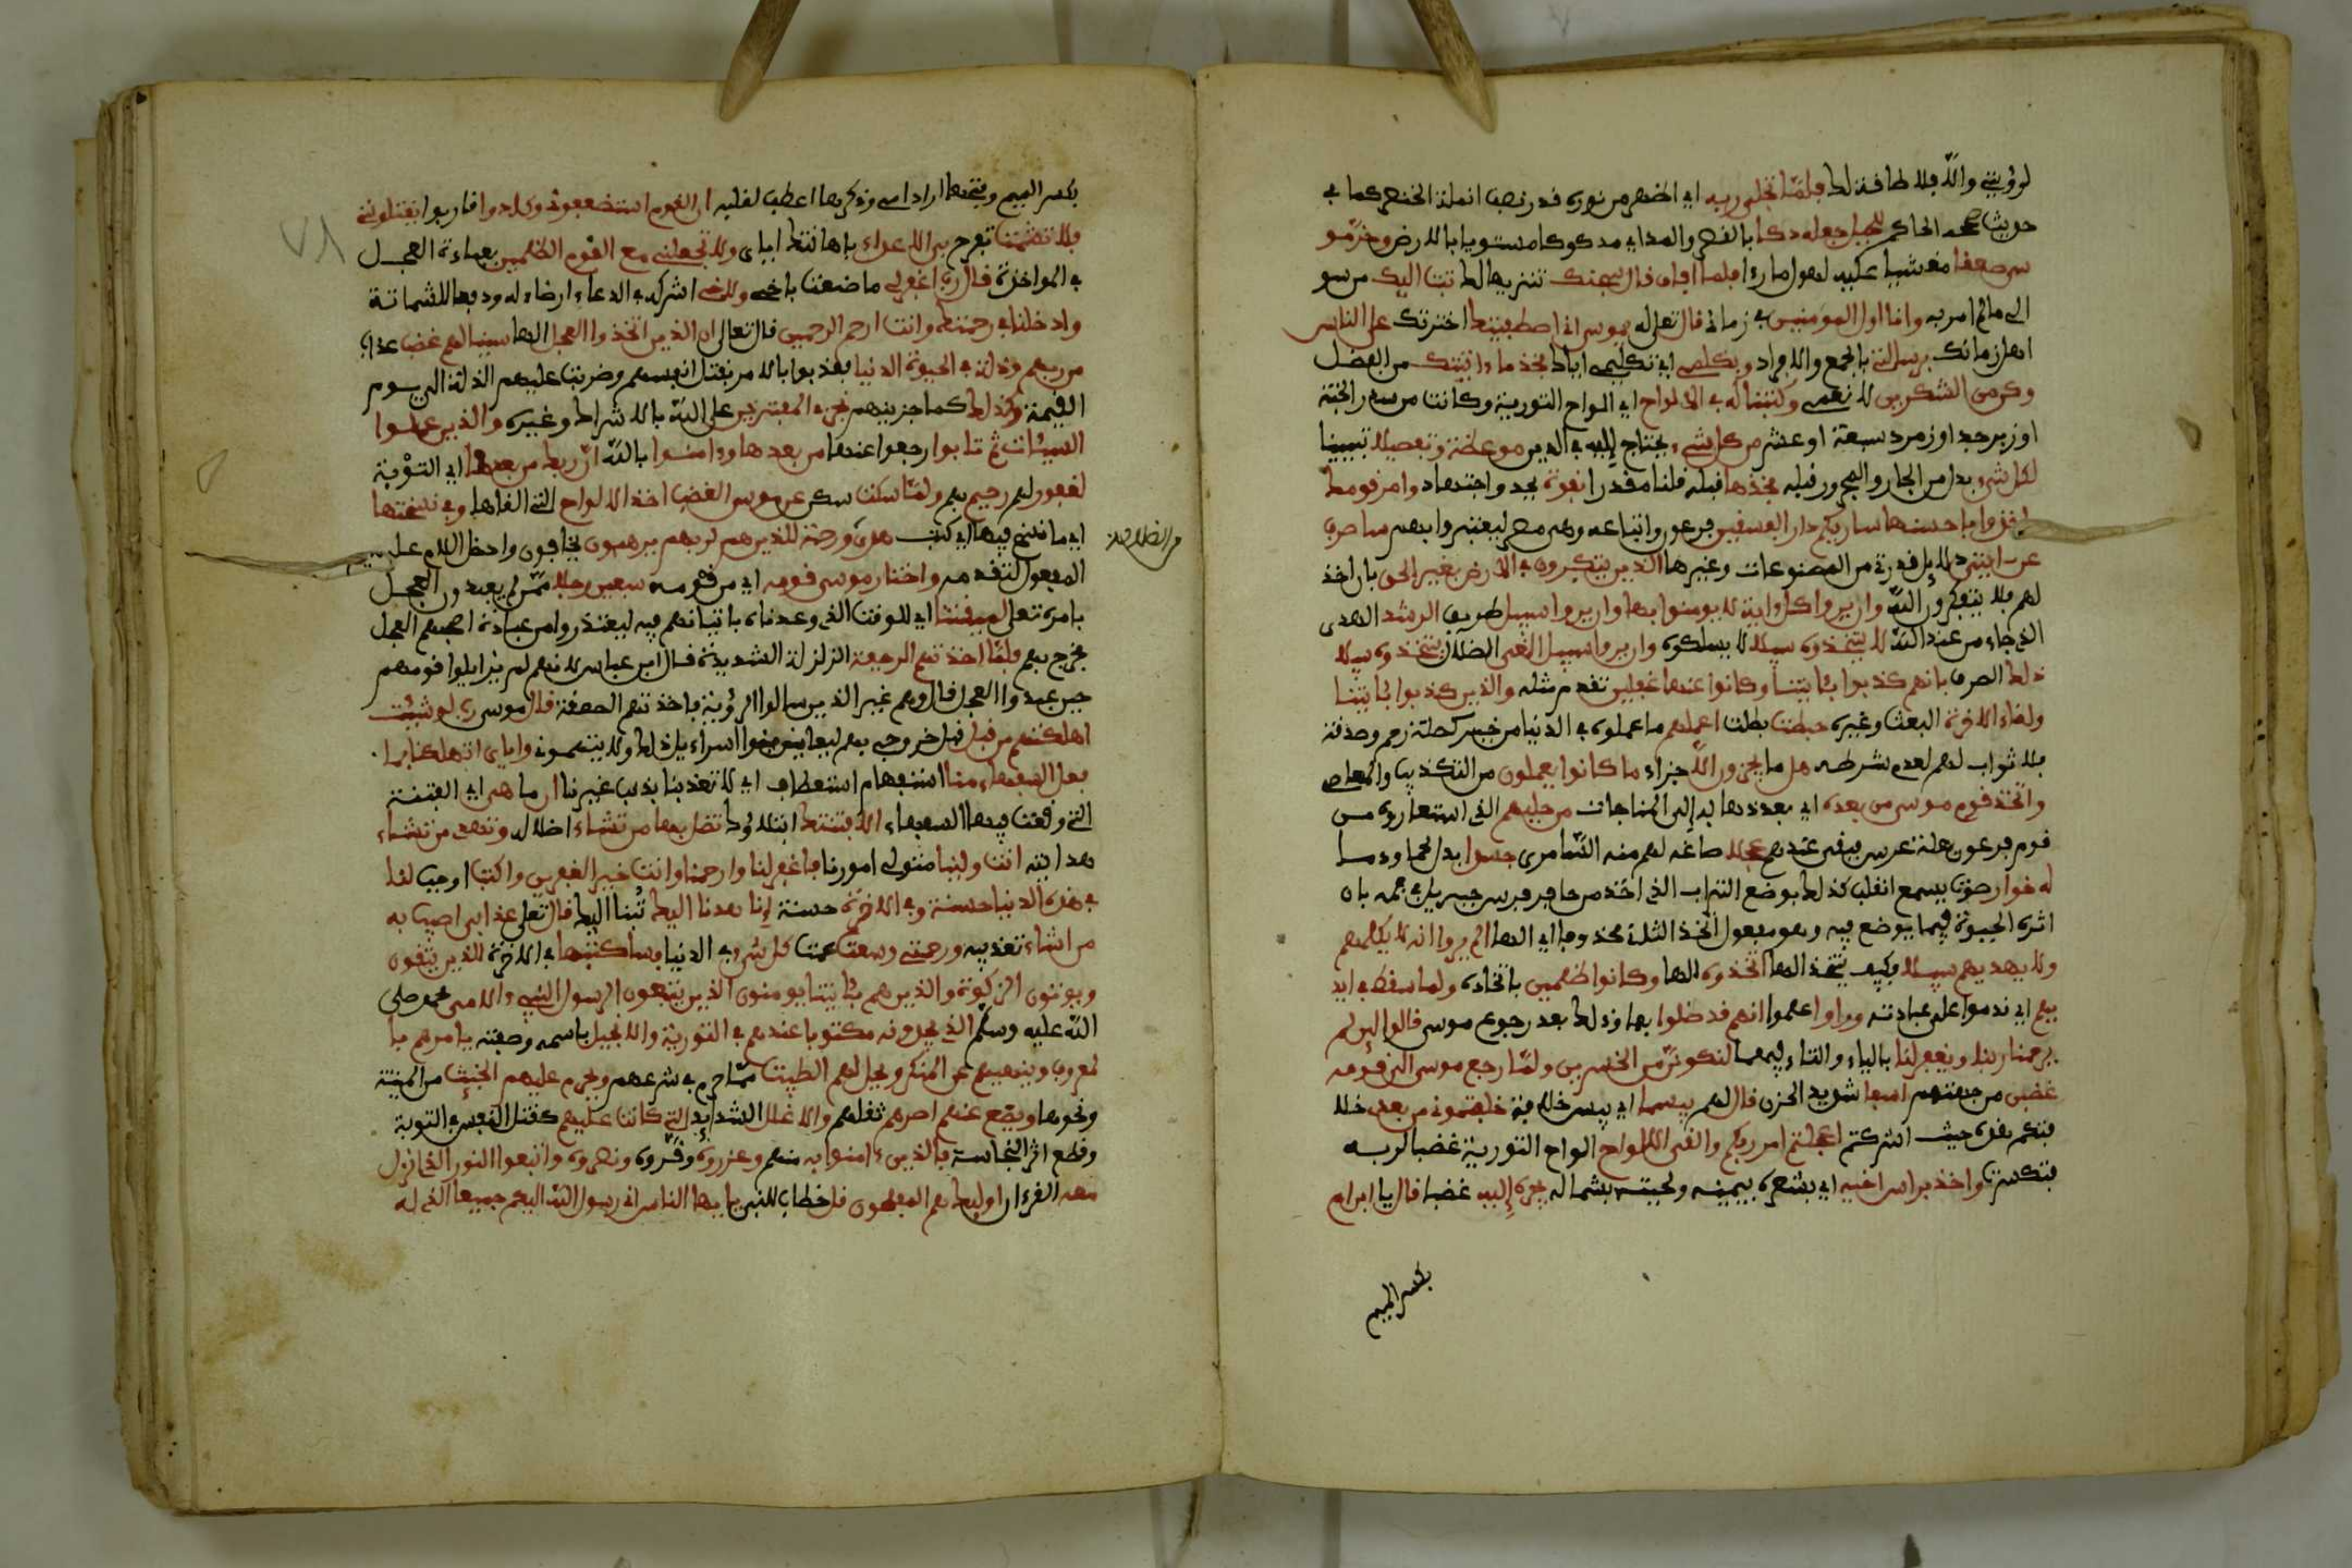 لرؤيتي والا فلا طاقة لك فلما تجلى ربه اي اظهر من نوره قدر نصف انملة الخنصر كما في
حديث صححه الحاكم للجبل جعله دكا بالقصر والمد اي مدكوكا مستويا بالارض وخر مو
سى صعقا مغشيا عليه لهول ما رءا فلما افاق قال سبحنك تنزيها لك تبت اليك من سو
ال ما لم اومر به وانا اول المومنين في زماني قال تعلى له يموسى اني اصطفيتك اخترتك على الناس
اهل زمانك برسلتي بالجمع والافراد وبكلمي اي تكليمي اياك فخذ ما ءاتيتك من الفضل
وكن من الشكرين لانعمي وكتبنا له في الالواح اي الواح التورية وكانت من سدر الجنة
او زبرجد او زمرد سبعة او عشر من كل شيء يحتاج اليه في الدين موعظة وتفصيلا تبيينا
لكل شيء بدل من الجار والمجرور قبله فخذها قبله قلنا مقدرا بقوة بجد واجتهاد وامر قومك
ياخذوا باحسنها ساريكم دار الفسقين فرعون واتباعه وهي مصر ليعتبروا بهم ساصرف
عن ءايتي دلايل قدرتي من المصنوعات وغيرها الذين يتكبرون في الارض بغير الحق بان اخذ
لهم فلا يتفكرون وان يروا كل ءاية لا يومنوا بها وان يروا سبيل طريق الرشد الهدى
الذي جاء من عند الله لا يتخذوه سبيلا يسلكوه وان يروا سبيل الغي الضلال يتخذوه سبيلا
ذلك الصرف بانهم كذبوا بئايتنا وكانوا عنها غفلين تقدم مثله والذين كذبوا بئايتنا
ولقاء الاخرة البعث وغيره حبطت بطلت اعملهم ما عملوه في الدنيا من خير كصلة رحم وصدقة
فلا ثواب لهم لعدم شرطه هل ما يجزون الا جزاء ما كانوا يعملون من التكذيب والمعاصي
واتخذ قوم موسى من بعده اي بعد ذهابه الى المناجات من حليهم الذي استعاروه من
قوم فرعون بعلة عرس فبقي عندهم عجلا صاغه لهم منه السامري جسدا بدل لحما ودما
له خوار صوت يسمع انقلب كذلك بوضع التراب الذي اخذ من حافر فرس جبريل في فمه فان
اثره الحيوة فيما يوضع فيه ومفعول اتخذ الثاني محذوف اي الها الم يروا انه لا يكلمهم
ولا يهديهم سبيلا فكيف يتخذ الها اتخذوه الها وكانوا ظلمين باتخاذه ولما سقط في ايد
يهم اي ندموا على عبادته وراوا علموا انهم قد ضلوا بها وذلك بعد رجوع موسى قالوا لين لم
يرحمنا ربنا ويغفر لنا بالياء والتاء فيهما لنكونن من الخسرين ولما رجع موسى الى قومه
غضبن من جهتهم اسفا شديد الحزن قال لهم بيسما اي بيس خلافة خلفتموني من بعدي خلا
فتكم هذه حيث اشركتم اعجلتم امر ربكم والقى الالواح الواح التورية غضبا لربه
فتكسرت واخذ براس اخيه اي بشعره بيمينه ولحيته بشماله يجره اليه غضبا قال يا ابن ام
بكسر الميم
بكسر الميم وفتحها اراد امي وذكرها اعطف لقلبه ان القوم استضعفوني وكادوا قاربوا يقتلونني
فلا تشمت تفرح بي الاعداء باهانتك اياي ولا تجعلني مع القوم الظلمين بعبادة العجل
في المواخذة قال رب اغفر لي ما صنعت باخي ولاخي اشركه في الدعاء ارضاء له ودفعا للشماتة
وادخلنا في رحمتك وانت ارحم الرحمين قال تعالى ان الذين اتخذوا العجل الها سينالهم غضب عذاب
من ربهم وذلة في الحيوة الدنيا فعذبوا بالامر بقتل انفسهم وضربت عليهم الذلة الى يوم
القيمة وكذلك كما جزينهم نجزي المفترين على الله بالاشراك وغيره والذين عملوا
السيئات ثم تابوا رجعوا عنها من بعدها وءامنوا بالله ان ربك من بعدها اي التوبة
لغفور لهم رحيم بهم ولما سكت سكن عن موسى الغضب اخذ الالواح التي القاها وفي نسختها
اي ما نسخ فيها اي كتب هدى من الضلالة ورحمة للذين هم لربهم يرهبون يخافون وادخل اللام على
المفعول لتقدمه واختار موسى قومه اي من قومه سبعين رجلا ممن لم يعبدوا العجل
بامره تعلى لميقتنا اي للوقت الذي وعدناه باتيانهم فيه ليعتذروا من عبادة اصحبهم العجل
فخرج بهم فلما اخذتهم الرجفة الزلزلة الشديدة قال ابن عباس لانهم لم يزايلوا قومهم
حين عبدوا العجل قال وهم غير الذين سالوا الرؤية فاخذتهم الصعقة قال موسى رب لو شيت
اهلكتهم من قبل قبل خروجي بهم ليعاين بنوا اسراءيل ذلك ولا يتهموني واياي اتهلكنا بما
فعل السفهاء منا استفهام استعطاف اي لا تعذبنا بذنب غيرنا ان ما هي اي الفتنة
التي وقعت فيها السفهاء الا فتنتك ابتلاوك تضل بها من تشاء اضلاله وتهدي من تشاء
هدايته انت ولينا متولي امورنا فاغفر لنا وارحمنا وانت خير الغفرين واكتب اوجب لنا
في هذه الدنيا حسنة وفي الاخرة حسنة انا هدنا اليك تبنا اليك قال تعلى عذابي اصيب به
من اشاء تعذيبه ورحمتي وسعت عمت كل شيء في الدنيا فساكتبها في الاخرة للذين يتقون
ويوتون الزكوة والذين هم بئايتنا يومنون الذين يتبعون الرسول النبيء الامي محمد صلى
الله عليه وسلم الذي يجدونه مكتوبا عندهم في التورية والانجيل باسمه وصفته يامرهم با
لمعروف وينهيهم عن المنكر ويحل لهم الطيبت مما حرم في شرعهم ويحرم عليهم الخبئث من الميتة
ونحوها ويضع عنهم اصرهم ثقلهم والاغلل الشدايد التي كانت عليهم كقتل النفس في التوبة
وقطع اثر النجاسة فالذين ءامنوا به منهم وعزروه وقروه ونصروه واتبعوا النور الذي انزل
معه القرءان اوليك هم المفلحون قل خطاب للنبي يايها الناس اني رسول الله اليكم جميعا الذي له
من الضلالة
٧٨